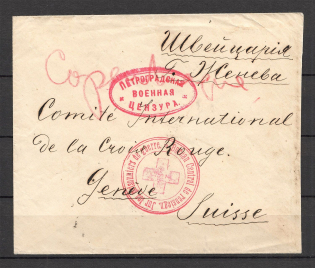 Швейцарія
г. Женева
ПЕТРОГРАДСКАЯ
ВОЕННАЯ
ЦЕНЗУРА.
Comité International
de la Croix Rouge.
Genève
Suisse